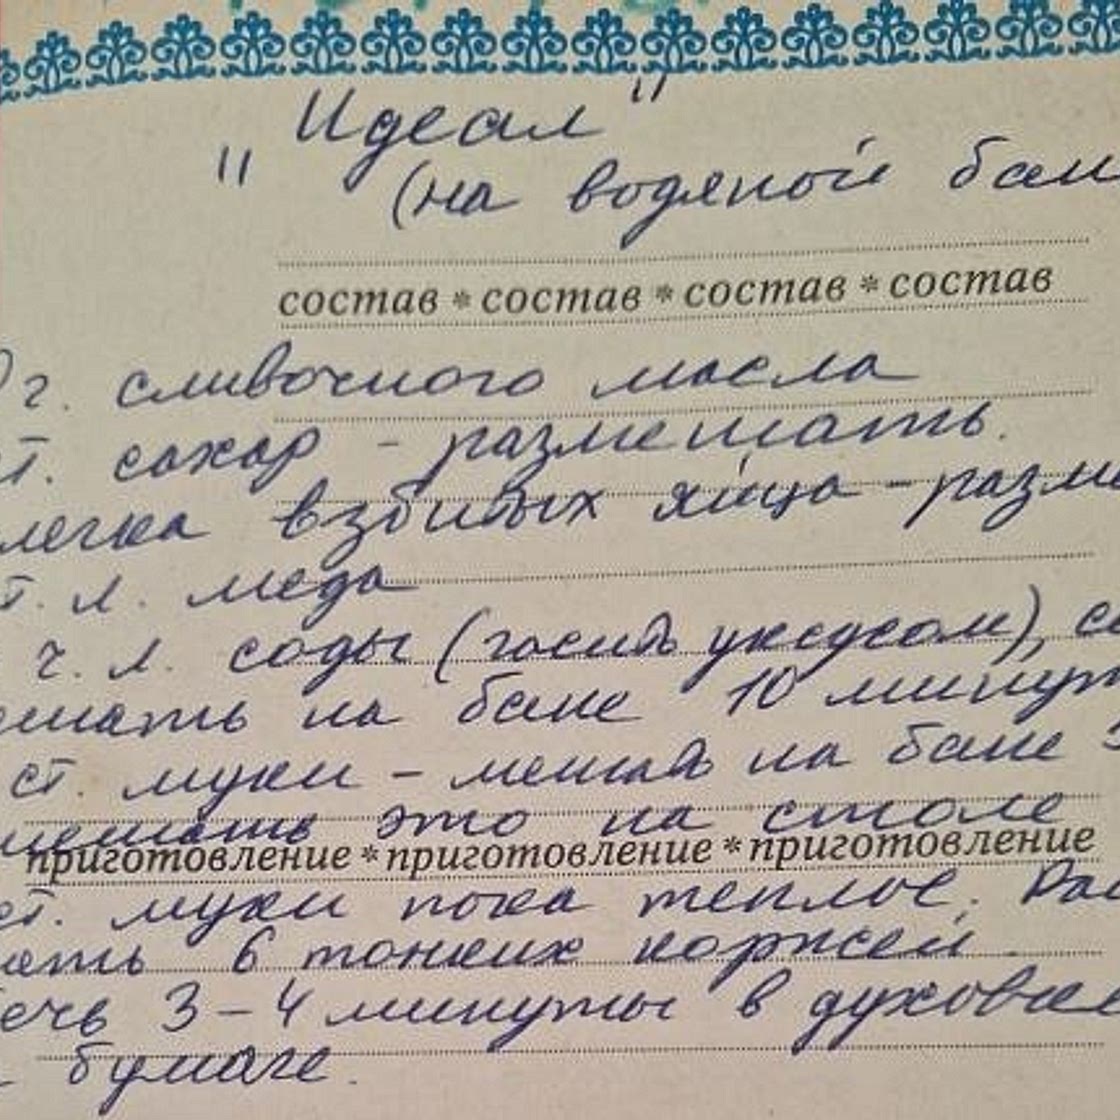 "Идеал"
(на водяной бан
состав * состав * состав * состав
г. сливочного масла
ст. сахар - размешать.
легка взбивых яйца - разм
т. л. меда
ч. л. соды (гасить уксусом), с
ешать на бане 10 минут
ст. муки - мешать на бане 3
мешать это на столе
приготовление * приготовление * приготовление
ст. муки пока теплое. Рас
ать 6 тонких коржей.
ечь 3-4 минуты в духовке
бумаге.